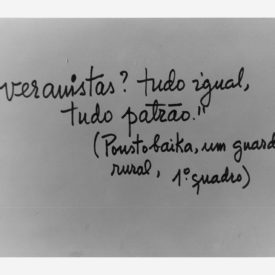 veranistas? tudo igual,
tudo patrão."
(Poustobaika, um guard
rural, 1º quadro)